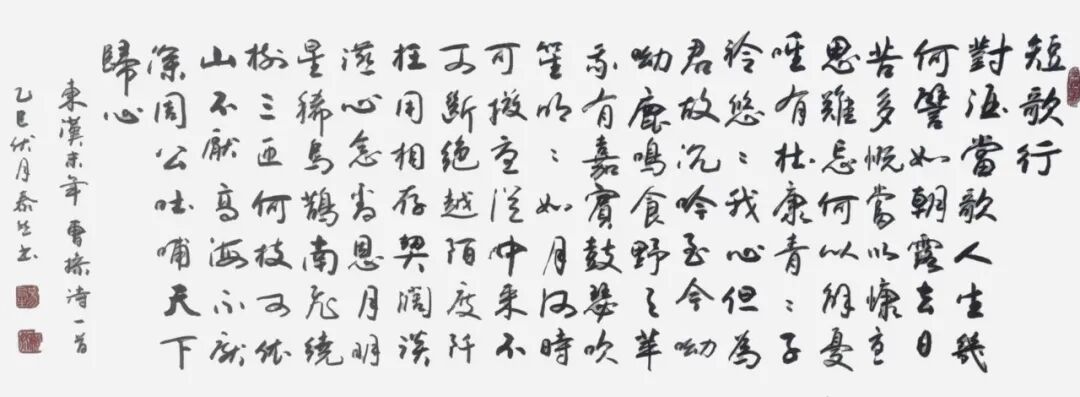 短歌行
對酒當歌人生幾
何譬如朝露去日
苦多慨當以慷憂
思難忘何以解憂
唯有杜康青〻子
衿悠〻我心但為
君故沉吟至今呦
呦鹿鳴食野之苹
我有嘉賓鼓瑟吹
笙明〻如月何時
可掇憂從中來不
可斷絕越陌度阡
枉用相存契闊談
讌心念舊恩月明
星稀烏鵲南飛繞
樹三匝何枝可依
山不厭高海不厭
深周公吐哺天下
歸心
東漢末年曹操詩一首
乙巳伏月泰書